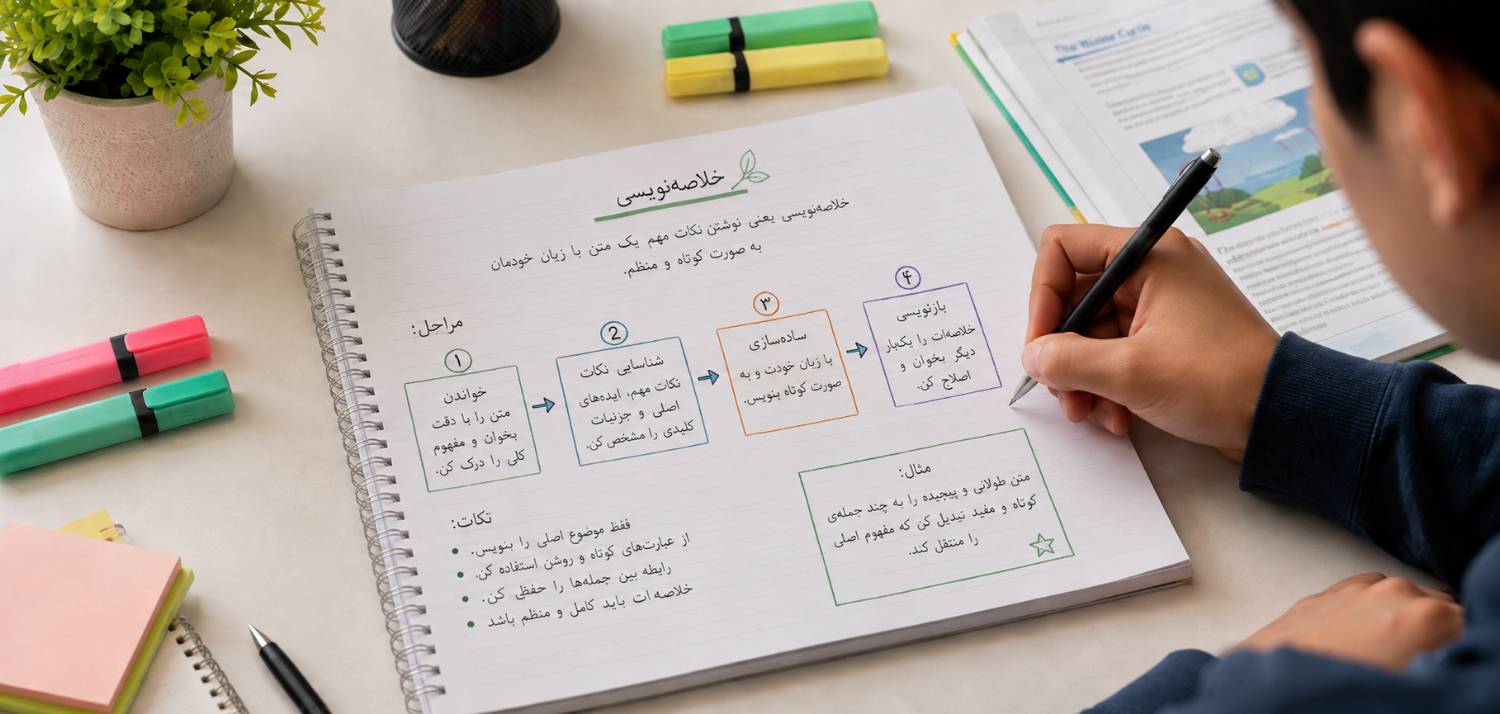 خلاصه‌نویسی
خلاصه‌نویسی یعنی نوشتن نکات مهم یک متن با زبان خودمان
به صورت کوتاه و منظم.
مراحل:
۱
خواندن
متن را با دقت
بخوان و مفهوم
کلی را درک کن.
2
شناسایی نکات
نکات مهم، ایده‌های
اصلی و جزئیات
کلیدی را مشخص کن.
۳
ساده‌سازی
با زبان خودت و به
صورت کوتاه بنویس.
۴
بازنویسی
خلاصه‌ات را یک‌بار
دیگر بخوان و
اصلاح کن.
نکات:
فقط موضوع اصلی را بنویس.
از عبارت‌های کوتاه و روشن استفاده کن.
رابطه بین جمله‌ها را حفظی کن.
خلاصه ات باید کامل و منظم باشد
مثال:
متن طولانی و پیچیده را به چند جمله‌ی
کوتاه و مفید تبدیل کن که مفهوم اصلی
را منتقل کند.